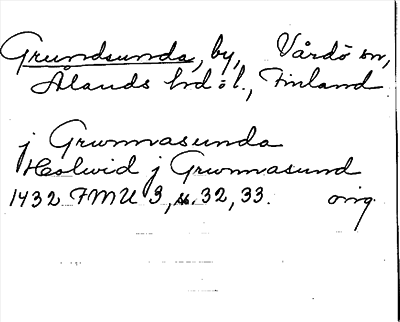 Grundsunda, by, Vårdö sn,
Ålands hd o l., Finland
j Grwnnasunda
Holwid j Grwnnasund
1432 FMU 3, ss. 32, 33. orig.